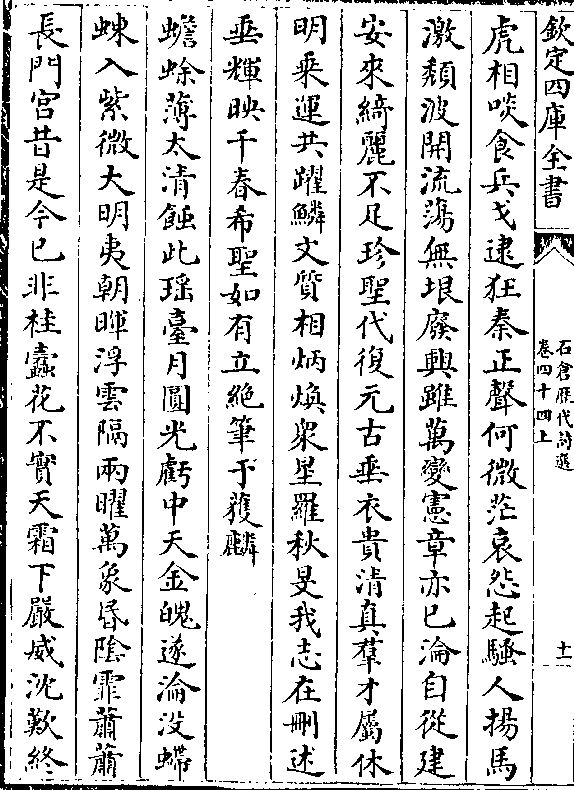 欽定四庫全書
石倉歴代詩選
卷四十四上
十一
虎相啖食兵戈逮狂秦正聲何微茫哀怨起騷人揚馬
激頽波開流蕩無垠廢興雖萬變憲章亦已淪自從建
安來綺麗不足珍聖代復元古垂衣貴清真羣才屬休
明乘運共躍鱗文質相炳煥衆星羅秋旻我志在刪述
垂輝映千春希聖如有立絶筆于獲麟
蟾蜍薄太清蝕此瑶臺月圓光虧中天金魄遂淪没螮
蝀入紫微大明夷朝暉浮雲隔兩曜萬象昏陰霏蕭蕭
長門宫昔是今已非桂蠹花不實天霜下嚴威沈歎終